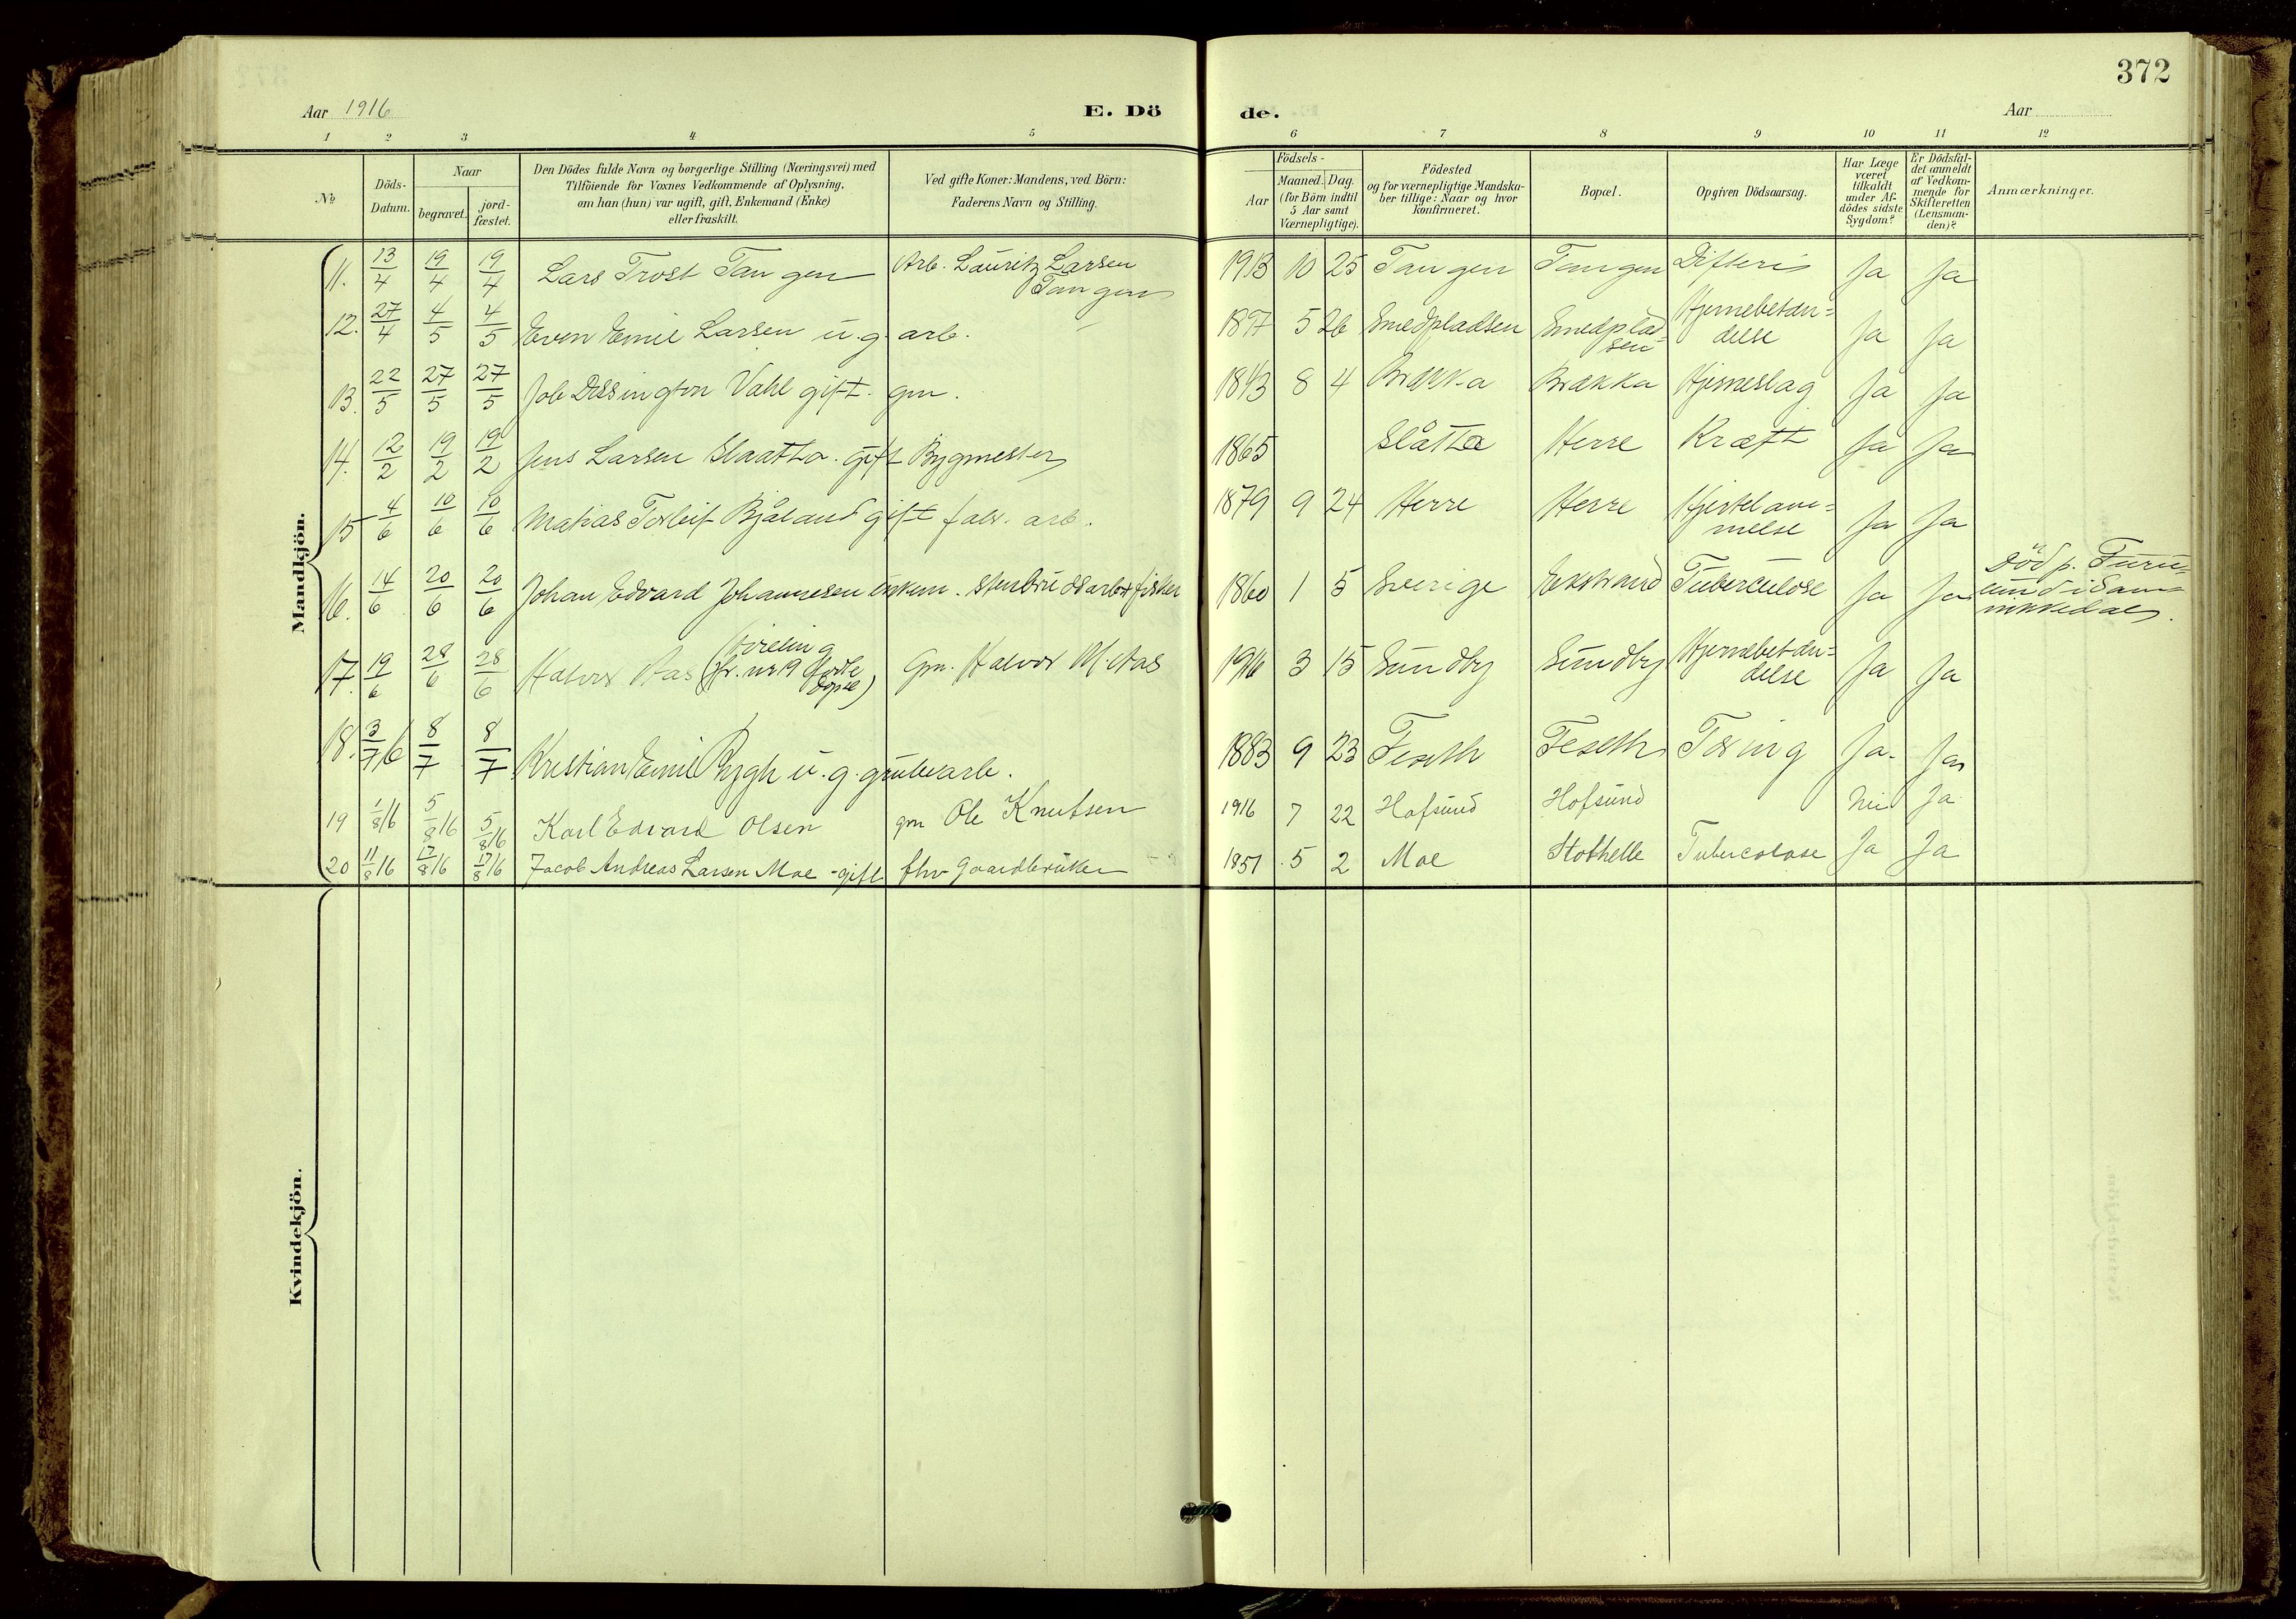 372
Aar 1916 E. Dö de. Aar
1 2 3 4 5 6 7 8 9 10 11 12
№ Döds-Datum. Naar begravet. jord-fæstet. Den Dödes fulde Navn og borgerlige Stilling (Næringsvei) med Tilföiende for Voxnes Vedkommende af Oplysning, om han (hun) var ugift, gift, Enkemand (Enke) eller fraskilt. Ved gifte Koner: Mandens, ved Börn: Faderens Navn og Stilling. Födsels- Aar Maaned. Dag. (for Börn indtil 5 Aar samt Værnepligtige). Födested og for værnepligtige Mandskaber tillige: Naar og hvor konfirmeret. Bopæl. Opgiven Dödsaarsag. Har Læge været tilkaldt under Afdödes sidste Sygdom? Er Dödsfaldet anmeldt af Vedkommende for Skifteretten (Lensmanden)? Anmærkninger.
Mandkjön.
11. 13/4 19/4 19/4 Lars Trost Tangen Arb. Lauritz Larsen Tangen 1913 10 25 Tangen Tangen Difteri Ja Ja
12. 27/4 4/5 4/5 Even Emil Larsen u.g. arb. 1897 5 26 Smedpladsen Smedpladsen Hjernebetændelse Ja Ja
13. 22/5 27/5 27/5 Job Dissington Vahl gift. gm. 1843 8 4 Brækka Brækka Hjerneslag Ja Ja
14. 12/2 19/2 19/2 Jens Larsen Slaatta. gift Bygmester 1865 Slåtta Herre Kræft Ja Ja
15 4/6 10/6 10/6 Matias Torleif Bjåland gift fabr. arb. 1879 9 24 Herre Herre Hjertelammelse Ja Ja
16. 14/6 20/6 20/6 Johan Edvard Johannesen enkem. stenbrudsarb + fisker 1860 1 5 Sverige Eekstrand Tuberculose Ja Ja Död p. Furulund i Sannikedal.
17. 19/6 28/6 28/6 Halvor Aas (tvilling fr. nr 19 födte döpte) Gm. Halvor M. Aas 1916 3 15 Sundby Sundby Hjernebetændelse Ja Ja
18. 3/7 16 8/7 8/7 Kristian Emil Rygh u.g. grubearb. 1883 9 23 Feseth Feseth Tæring Ja. Ja
19 1/8 16 5/8 16 5/8 16 Karl Edvard Olsen gm Ole Knutsen 1916 7 22 Hafsund Hofsund Nei Ja
20 11/8 16 17/8 16 17/8 16 Jacob Andreas Larsen Moe - gift fhv. Gaardbruker 1851 5 2 Moe Stathelle Tubercolose Ja Ja
Kvindekjön.